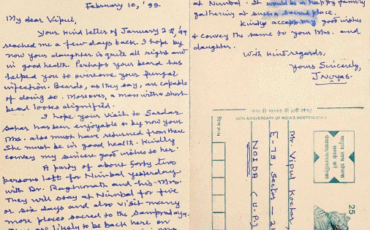 February 10, '99.
My dear Vipul,
Your kind letter of January 28, 99
reached me a few days back. I hope by
now your daughter is quite all right and
in good health. Perhaps your beard has
helped you to overcome your fungal
infection. Beards, as they say, are capable
of doing so. Moreover, a man with a short
beard looks dignified.
I hope your visit to Sardar
has been enjoyable & by now your
Mrs. also must have returned from there
She must be in good health. Kindly
convey my sincere good wishes to her.
A party of about forty two
persons left for Nimbal yesterday
with Dr. and his Mrs.
They will stay at Nimbal for five
or six days and also visit many
more places sacred to the Sampradaya.
are likely to be back here on
at Nimbal. It would be a happy family
gathering at such a sacred place.
Kindly accept my good wishes
& convey the same to your Mrs. and
daughter.
With kind regards,
Yours Sincerely,
Mr. Vipul
E-78, Sector-2
NOIDA (U.P.)
25